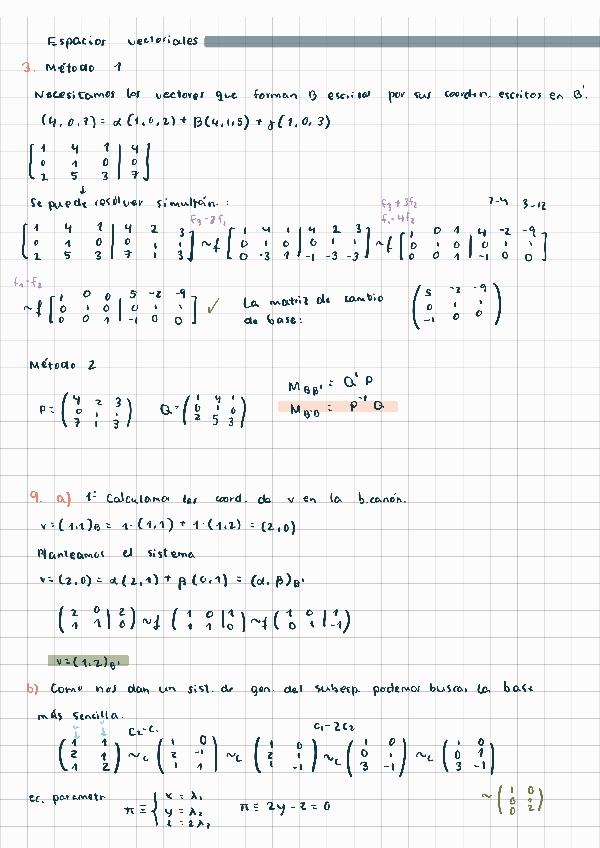 Espacios vectoriales
3. Método 1
Necesitamos los vectores que forman B escritos por sus coordin. escritos en B'.
(4,0,7) = α(1,0,2) + β(4,1,5) + γ(1,0,3)
1 4 1 | 4
0 1 0 | 0
2 5 3 | 7
↓
Se puede resolver simultán.:
f3-2f1
f3+3f2
f1-4f2
7-4 3-12
1 4 1 | 4 2 3
0 1 0 | 0 1 1
2 5 3 | 7 1 3
~f
1 4 1 | 4 2 3
0 1 0 | 0 1 1
0 -3 1 | -1 -3 -3
~f
1 0 1 | 4 -2 -9
0 1 0 | 0 1 1
0 0 1 | -1 0 0
f1-f2
~f
1 0 0 | 5 -2 -9
0 1 0 | 0 1 1
0 0 1 | -1 0 0
✓
La matriz de cambio
de base:
5 -2 -9
0 1 1
-1 0 0
Método 2
P =
4 2 3
0 1 1
7 1 3
Q =
1 4 1
0 1 0
2 5 3
M BB' = Q⁻¹ P
M B'B = P⁻¹ Q
9. a) 1º Calculamos las coord. de v en la b.canón.
v = (1,1)B = 1·(1,1) + 1·(1,2) = (2,0)
Planteamos el sistema
v = (2,0) = α(2,1) + β(0,1) = (α,β)B'
2 0 | 2
1 1 | 0
~f
1 0 | 1
1 1 | 0
~f
1 0 | 1
0 1 | -1
v = (1,2)B'
b) Como nos dan un sist. de gen. del subesp. podemos buscar la base
más sencilla.
C2-C1
C1-2C2
1 1
2 1
1 2
~c
1 0
2 -1
1 1
~c
1 0
2 1
1 -1
~c
1 0
0 1
3 -1
~c
1 0
0 1
3 -1
ec. parametr
π ≡
x = λ1
y = λ2
z = 2λ2
π ≡ 2y - z = 0
~
1 0
0 1
0 2